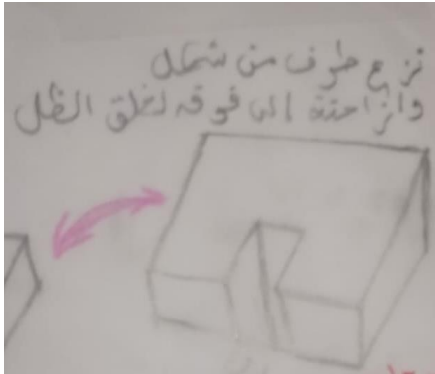 نزع طرف من شكل
وازاحته الى فوقه لخلق الظل